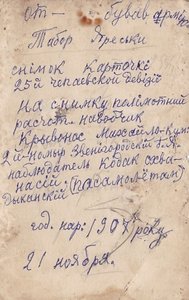 От — бував армії
Табор Яреськи
снімок карточке
25ой чепаевской девізії
на снимку полімотний
расчот наводчик
Крывонос Михайло-Кун
2й-номыр Звенигородскій д-я.
наблюдатель Кодак Афа-
насій: (пасамолётам)
Дыканскій
год. нар: 190 року
21 ноября.